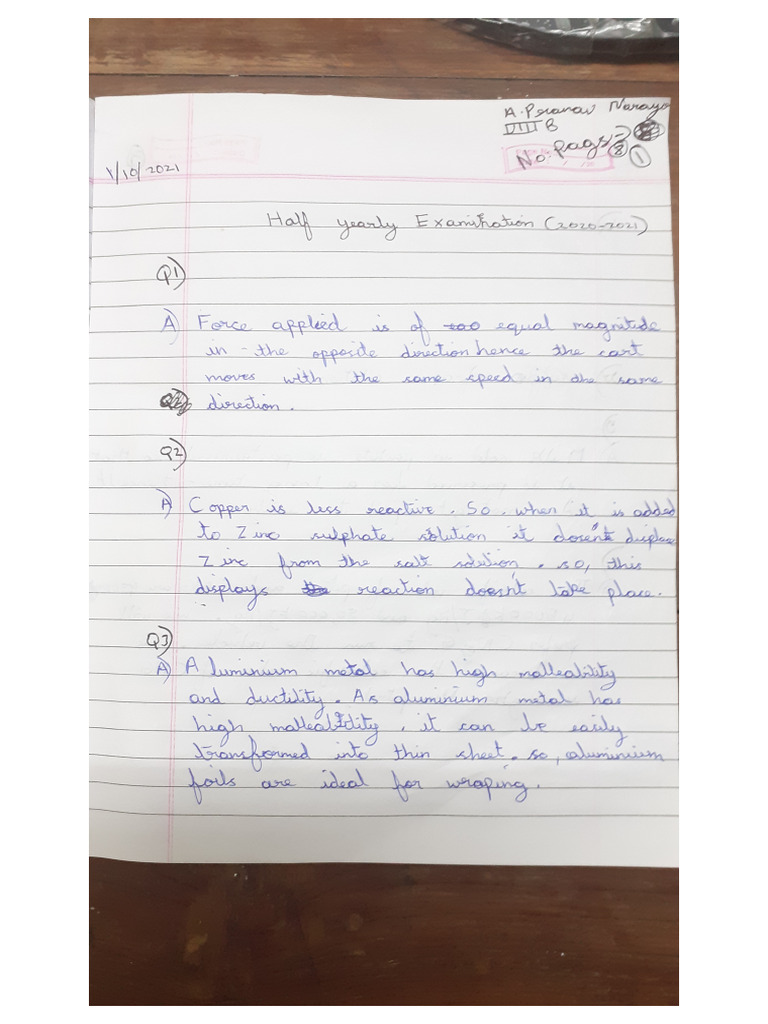 A. Pranav Naraya
VIII B
No. Pags 8 1
1/10/2021
Half yearly Examination (2020-2021)
Q1)
A) Force applied is of equal magnitude
in the opposite direction hence the cart
moves with the same speed in the same
direction.
Q2)
A) Copper is less reactive. So, when it is added
to Zinc sulphate solution it doesn't displace
Zinc from the salt solution. so, this
displays reaction doesn't take place.
Q3)
A) Aluminium metal has high malleability
and ductility. As aluminium metal has
high malleability, it can be easily
transformed into thin sheet. so, aluminium
foils are ideal for wraping.